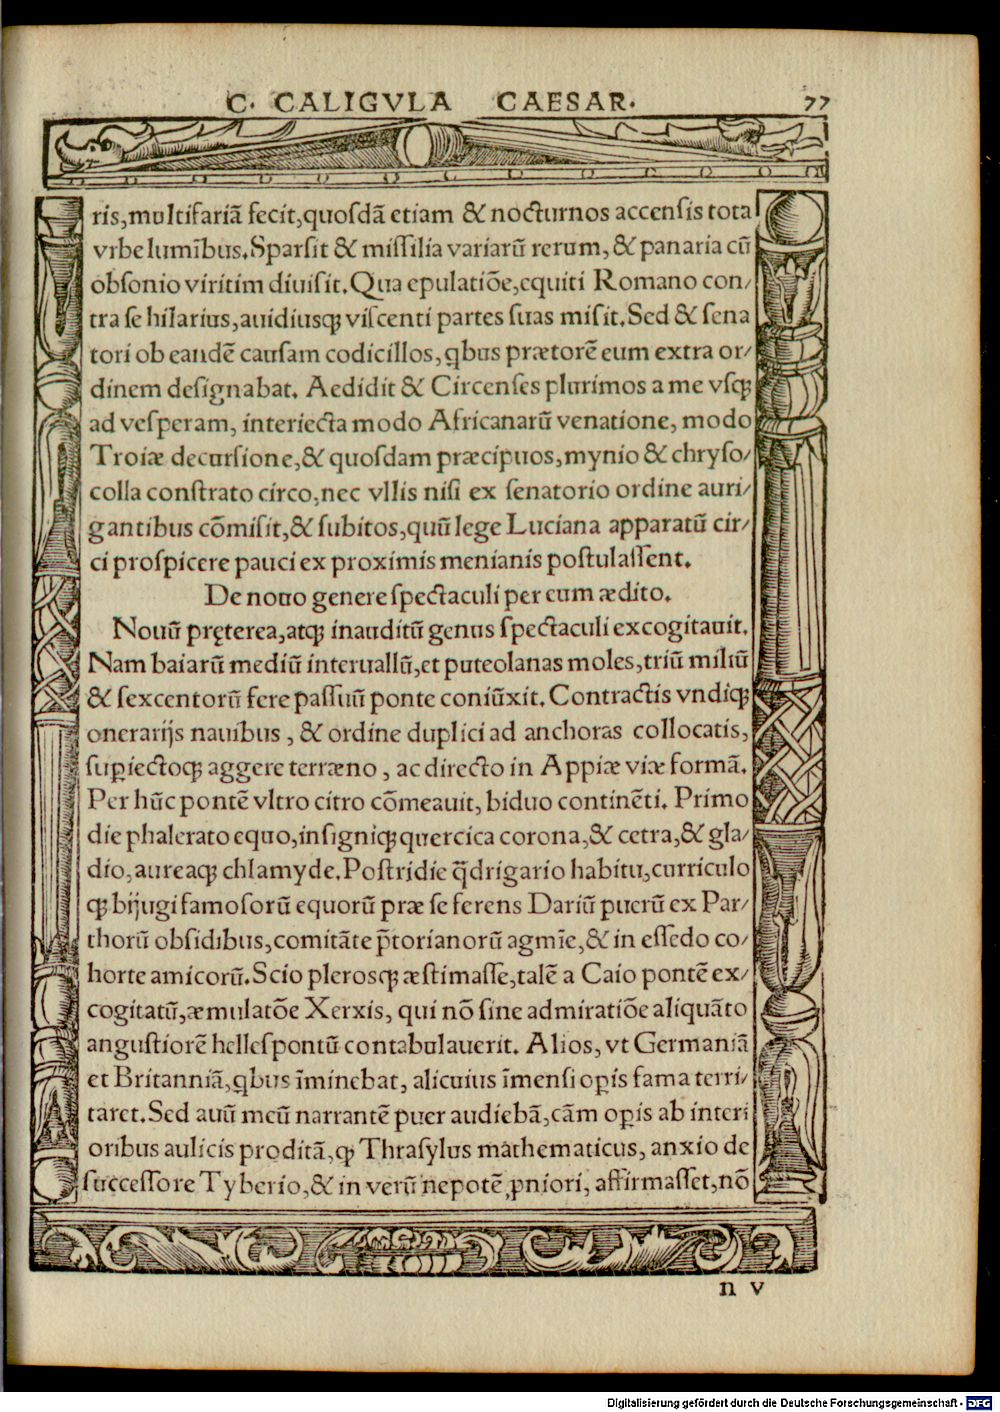 C. CALIGVLA CAESAR. 77
ris,multifariā fecit,quosdā etiam & nocturnos accensis tota
vrbe lumībus.Sparsit & missilia variarū rerum, & panaria cū
obsonio viritim diuisit.Qua epulatiōe,equiti Romano con/
tra se hilarius,auidiusqꝫ viscenti partes suas misit.Sed & sena
tori ob eandē causam codicillos,qbus prætorē eum extra or/
dinem designabat. Aedidit & Circenses plurimos a me vsqꝫ
ad vesperam, interiecta modo Africanarū venatione, modo
Troiæ decursione,& quosdam præcipuos,mynio & chryso/
colla constrato circo,nec vllis nisi ex senatorio ordine auri/
gantibus cōmisit,& subitos,quū lege Luciana apparatū cir/
ci prospicere pauci ex proximis menianis postulassent.
De nouo genere spectaculi per eum ædito.
Nouū pręterea,atqꝫ inauditū genus spectaculi excogitauit.
Nam baiarū mediū interuallū,et puteolanas moles,triū miliū
& sexcentorū fere passuū ponte coniūxit. Contractis vndiqꝫ
onerarijs nauibus , & ordine duplici ad anchoras collocatis,
suꝑiectoqꝫ aggere terræno , ac directo in Appiæ viæ formā.
Per hūc pontē vltro citro cōmeauit, biduo continēti. Primo
die phalerato equo,insigniqꝫ quercica corona,& cetra,& gla/
dio,aureaqꝫ chlamyde.Postridie q̄drigario habitu,curriculo
qꝫ bijugi famosorū equorū præ se ferens Dariū puerū ex Par/
thorū obsidibus,comitāte p̄torianorū agmīe,& in essedo co/
horte amicorū.Scio plerosqꝫ æstimasse,talē a Caio pontē ex/
cogitatū,æmulatōe Xerxis, qui nō sine admiratiōe aliquāto
angustiorē hellespontū contabulauerit. Alios, vt Germaniā
et Britanniā,qbus īminebat, alicuius īmensi oꝑis fama terri/
taret.Sed auū meū narrantē puer audiebā,cām oꝑis ab interi
oribus aulicis proditā,qꝫ Thrasylus mathematicus, anxio de
successore Tyberio,& in verū nepotē ꝓniori, affirmasset,nō
n v
Digitalisierung gefördert durch die Deutsche Forschungsgemeinschaft - DFG